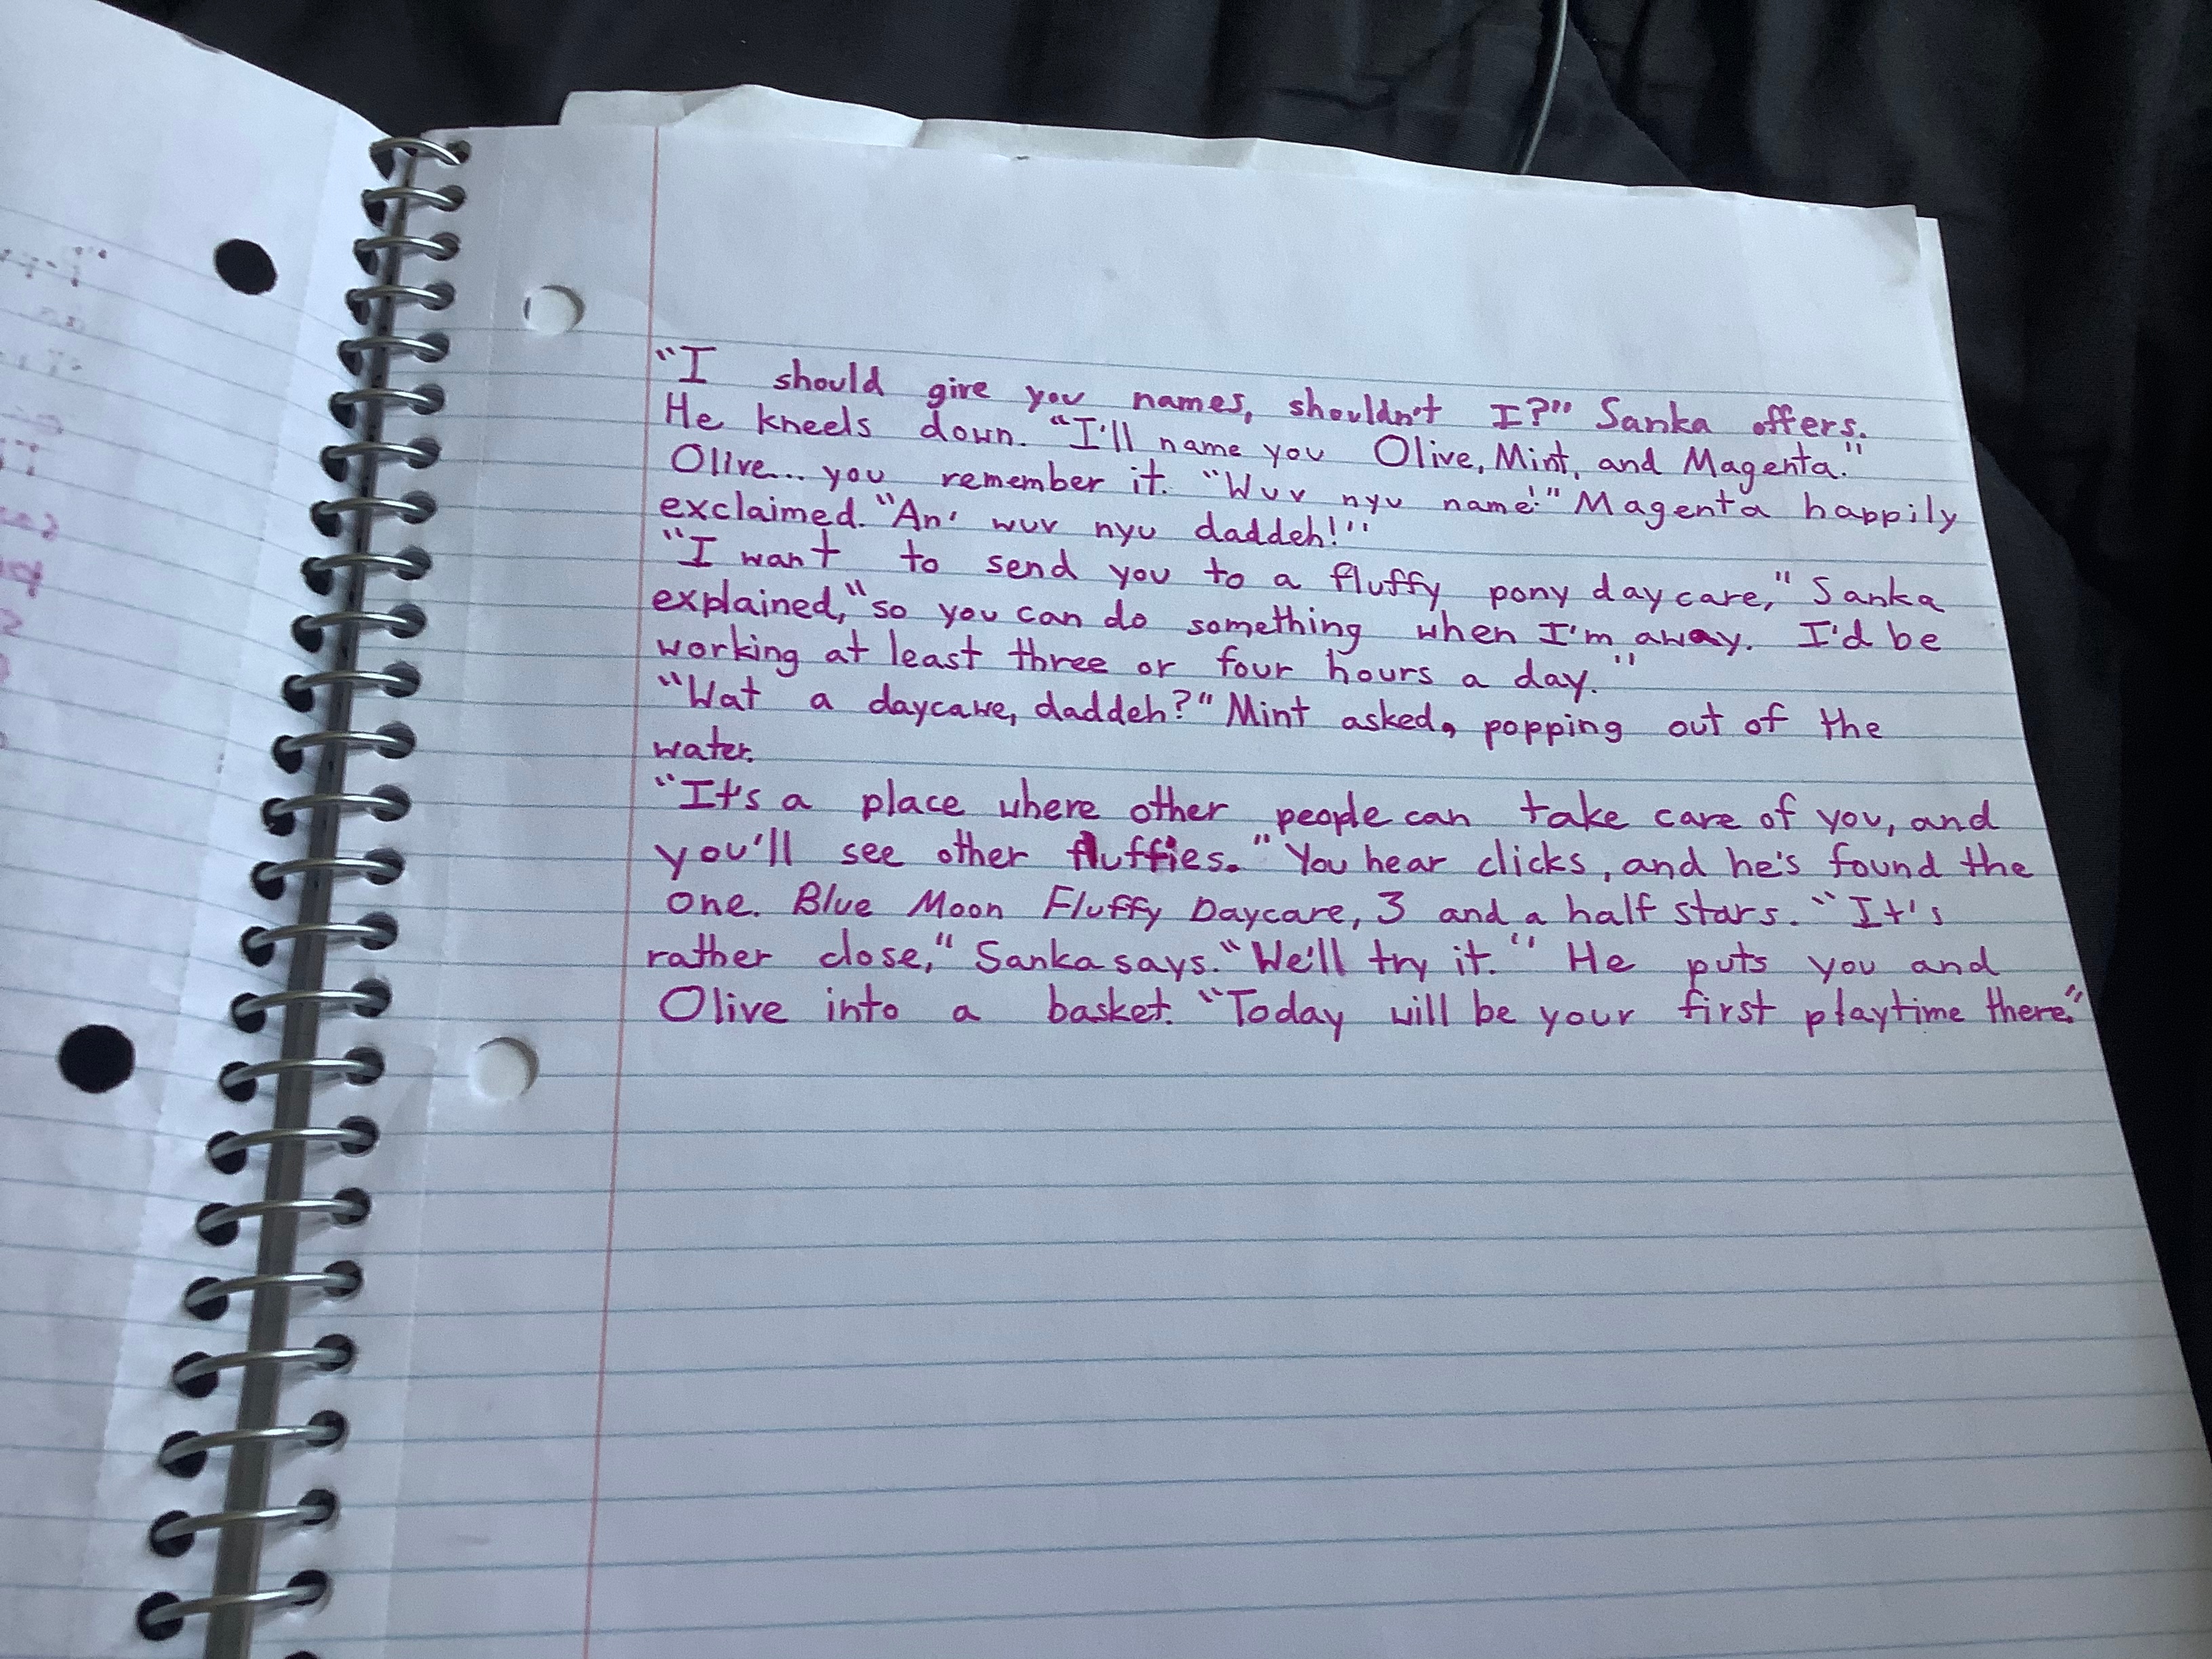 "I should give you names, shouldn't I?" Sanka offers.
He kneels down. "I'll name you Olive, Mint, and Magenta."
Olive... you remember it. "Wuv nyu name!" Magenta happily
exclaimed. "An' wuv nyu daddeh!"
"I want to send you to a fluffy pony daycare," Sanka
explained, "so you can do something when I'm away. I'd be
working at least three or four hours a day."
"Wat a daycawe, daddeh?" Mint asked, popping out of the
water.
"It's a place where other people can take care of you, and
you'll see other fluffies." You hear clicks, and he's found the
one. Blue Moon Fluffy Daycare, 3 and a half stars. "It's
rather close," Sanka says. "We'll try it." He puts you and
Olive into a basket. "Today will be your first playtime there."